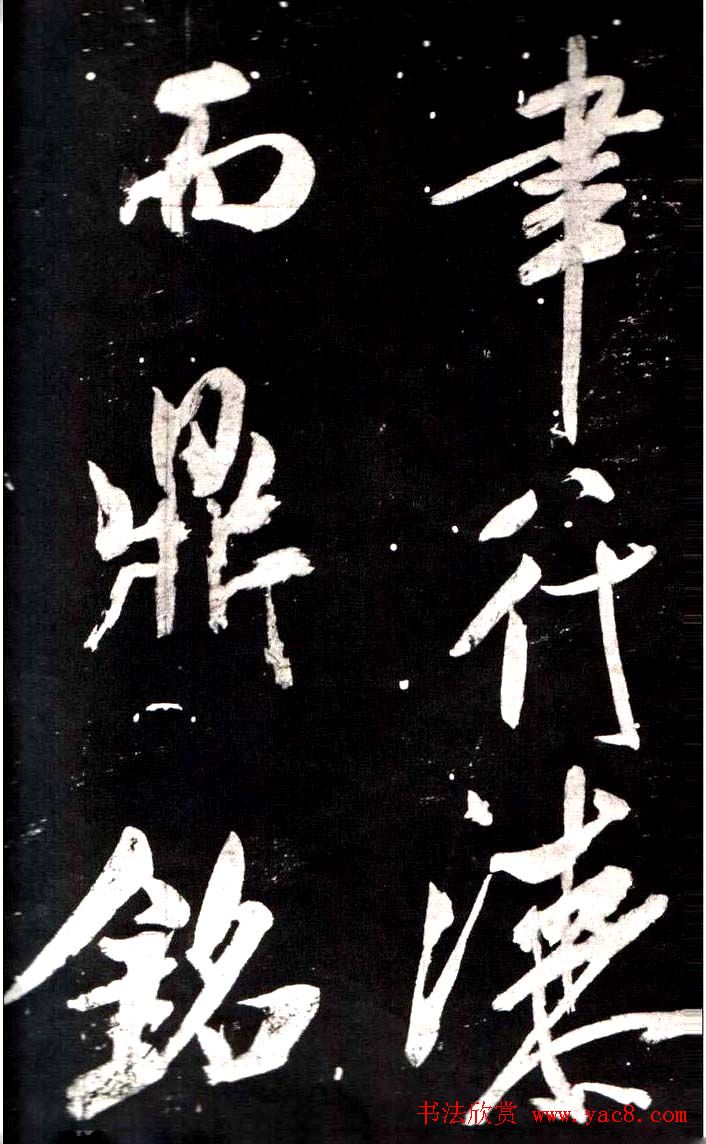 聿行漆
而鼎銘
书法欣赏 www.yac8.com